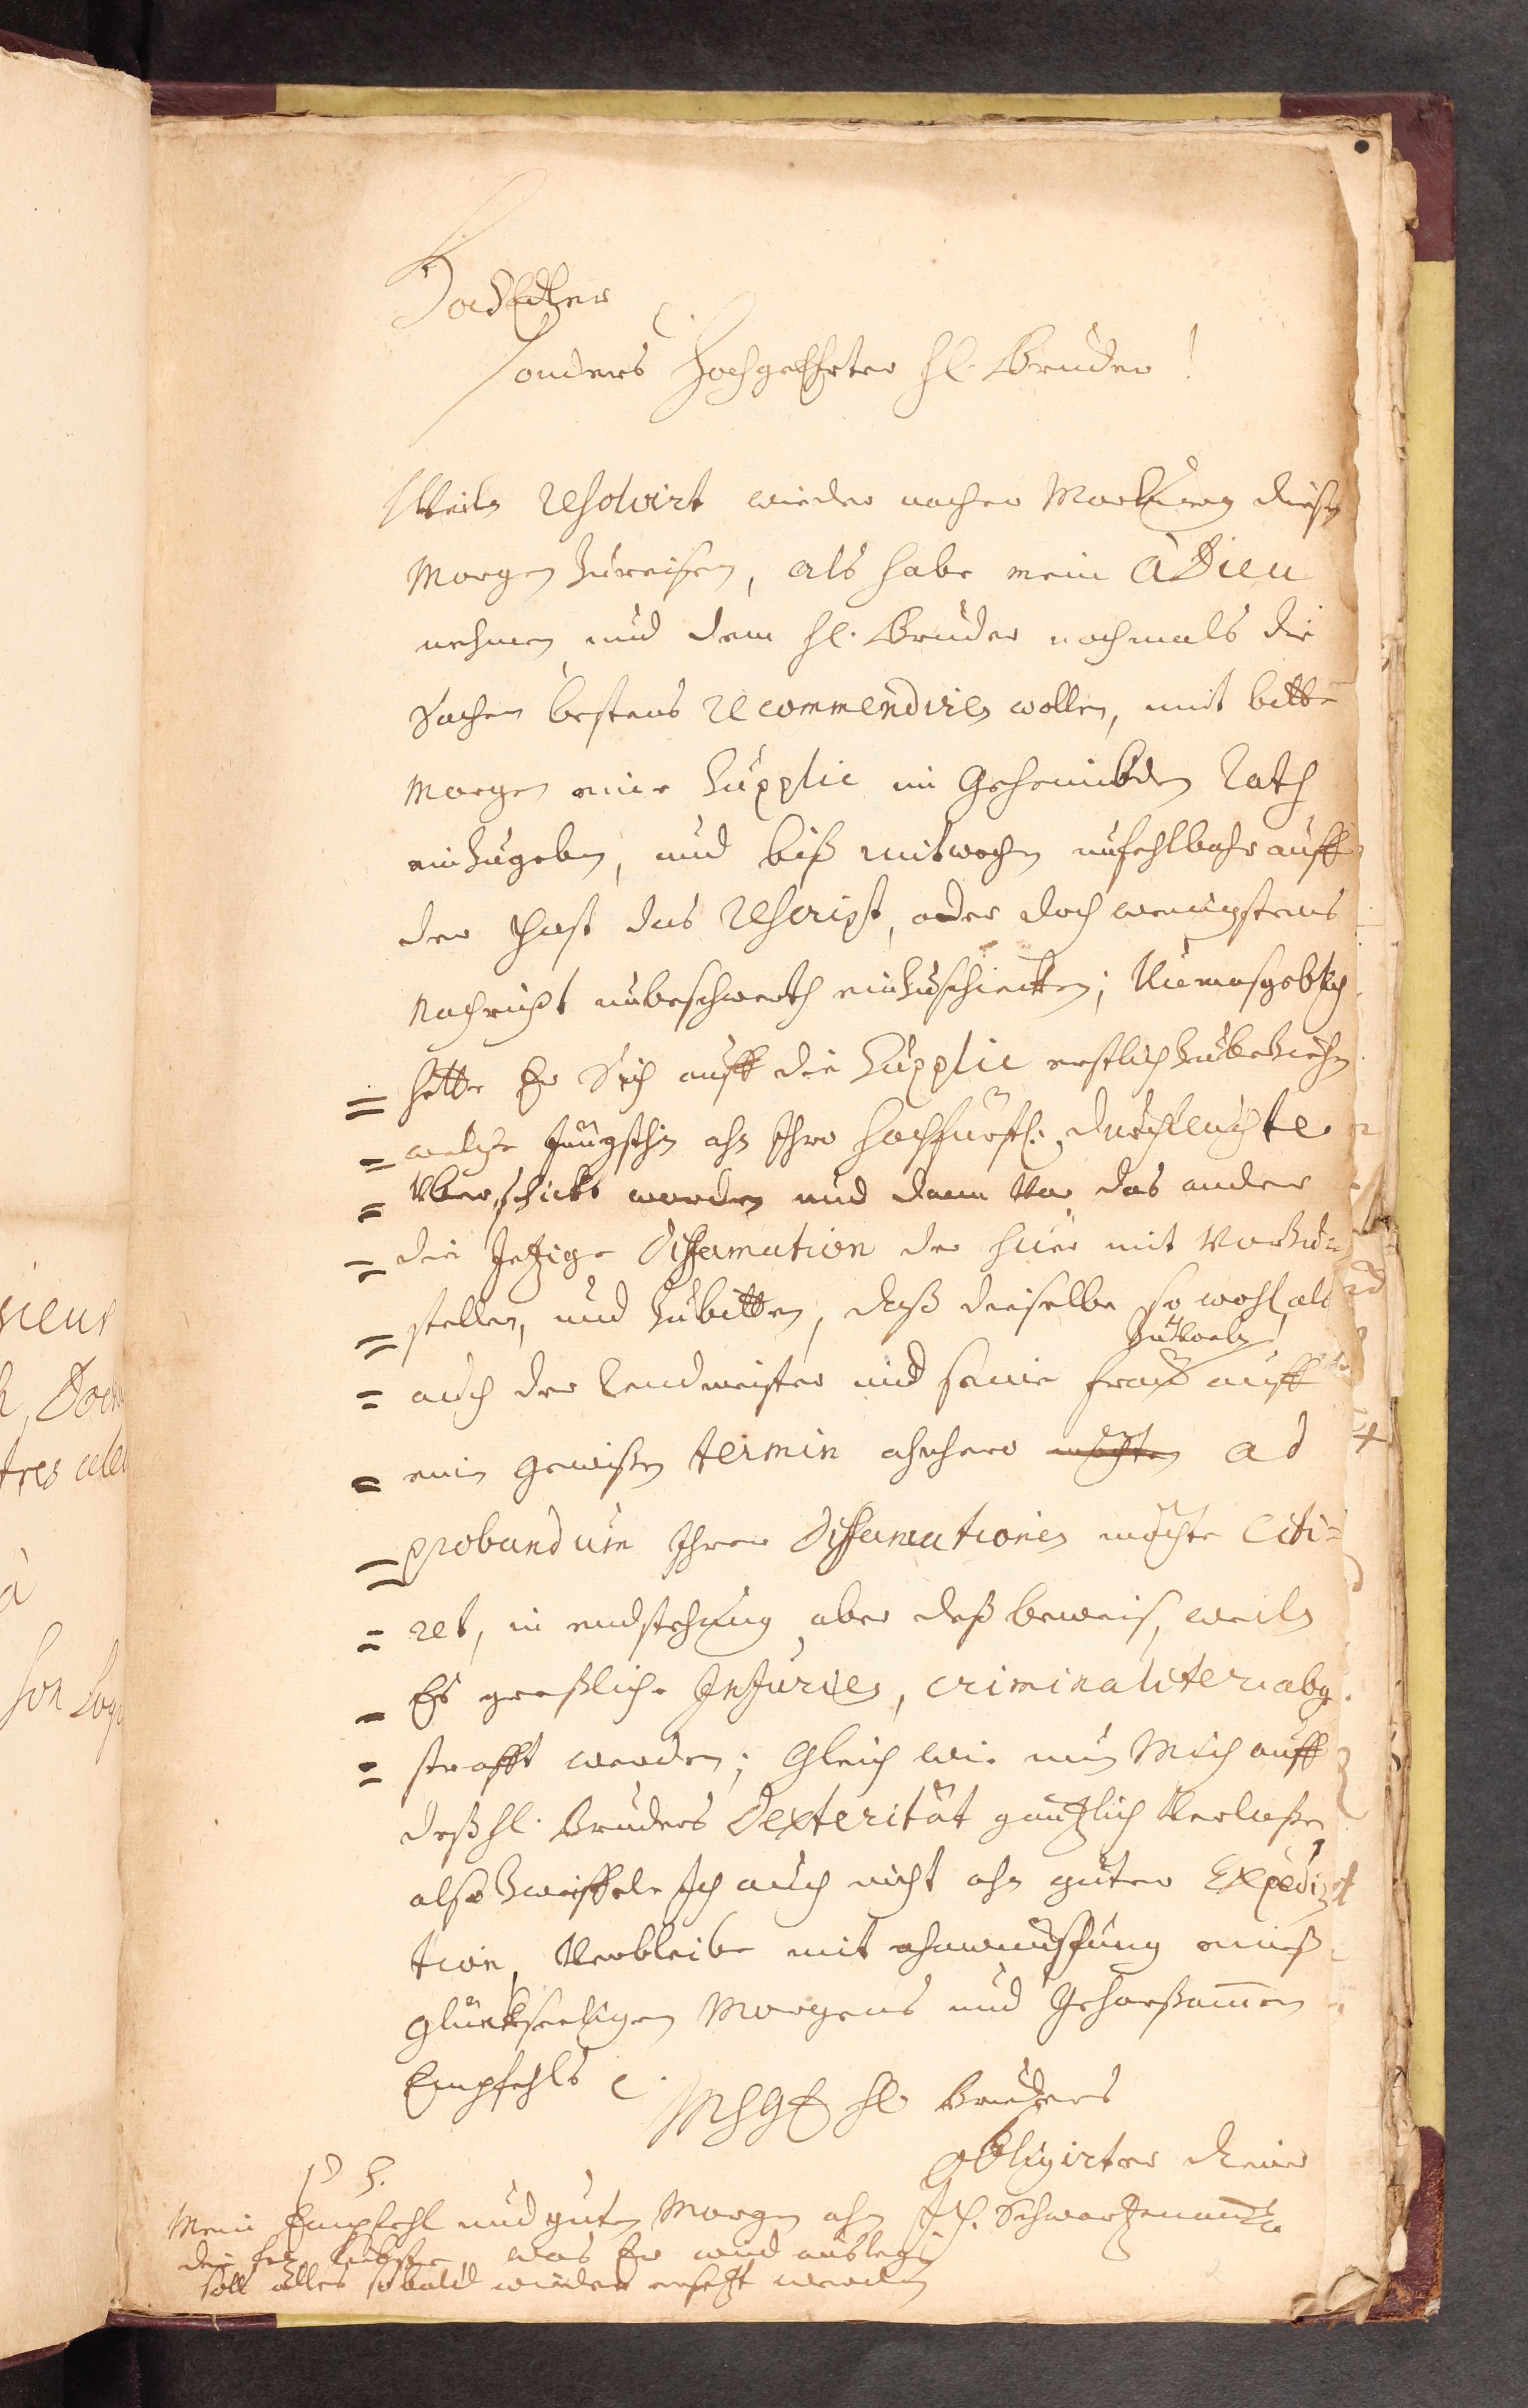 HochEdler
sonders Hochgeehrter Hl. Bruder!
Weiln resolvirt wieder nacher Marburg diesen
Morgen zureisen, als habe mein adieu
nehmen und dem Hl. Bruder nochmals die
Sachen bestens recommendiren wollen, mit bitte
Morgen eine Supplic im Geheimbden Rath
einzugeben, und biß mitwochen unfehlbahr auff
der Post das Rescript, oder doch wenigstens
Nachricht unbeschwerth einzuschicken; Unmasgeblich
hette Er Sich auff die Supplic erstlich zubeziehen
welche jüngsthin ahn Ihro Hochfürstl. Durchleuchte
überschickt worden und dann Vor das ander
die jetzige Diffamation der hier mit Vorzu=
stellen, und zubitten, daß dieselbe so wohl als
auch der Rendmeister und seine Frau auff
ein gewißen termin ahnhero möchten ad
probandum Ihrer Diffamationen möchte Citi=
ret, in endstehung aber deß beweis, weiln
Es greßliche Injurien, criminaliter abge
strafft werden; Gleich wie nun Mich auff
deß Hl. Bruders Dexterität gäntzlich Verlaße,
also zweiffele Ich auch nicht ahn guter Expedi=
tion, Verbleibe mit ahnwünschung eines
glückseeligen Morgens und Gehorsammen
Empfehls
MHGE Hl. Bruders
obligirter diener
PS.
Mein Empfehl und guten Morgen ahn
was Er wird außlegen
soll alles sobald wieder ersetzt werden